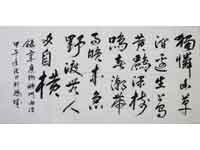 獨憐幽草
澗邊生上有
黃鸝深樹
鳴春潮帶
雨晚來急
野渡無人
舟自橫
錄韋應物
甲午